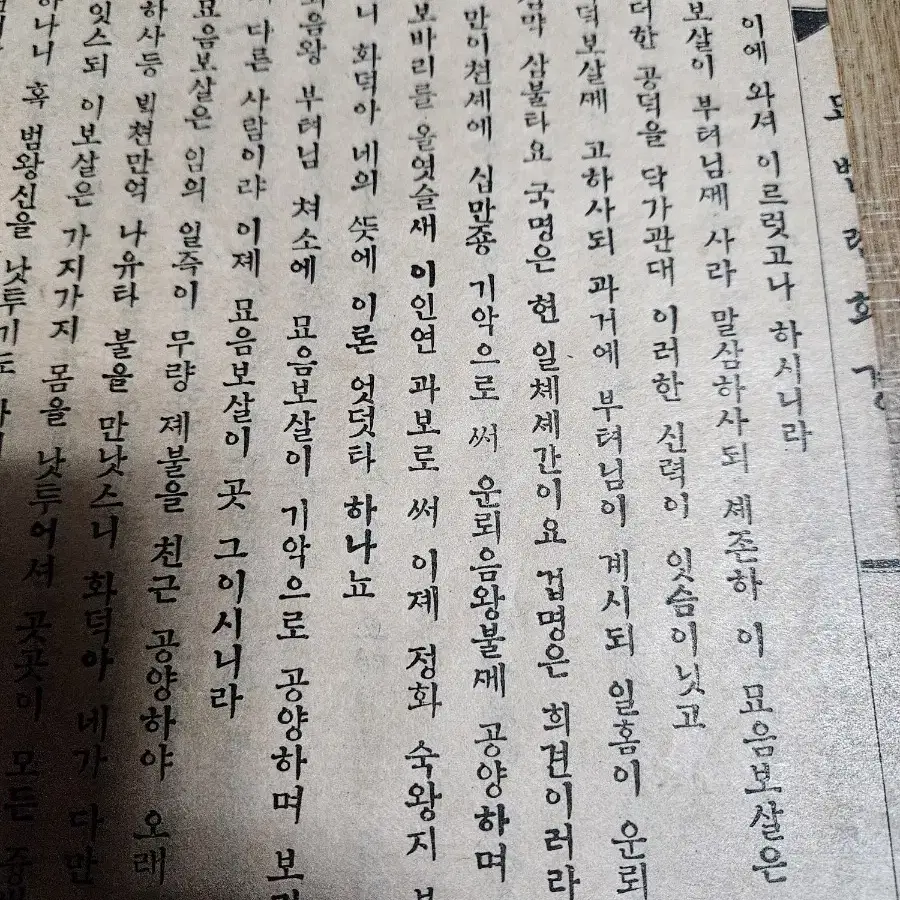 묘법련화경
이에 와셔 이르럿고나 하시니라
보살이 부텨님ᄭᅦ 사라 말삼하사되 셰존하 이 묘음보살은
더한 공덕을 닥가관대 이러한 신력이 잇슴이닛고
덕보살ᄭᅦ 고하사되 과거에 부텨님이 계시되 일홈이 운뢰
삼막 삼불타요 국명은 현 일쳬셰간이요 겁명은 희견이러라
만이쳔셰에 십만죵 기악으로 써 운뢰음왕불ᄭᅦ 공양하며
보바리를 올엿슬새 이인연 과보로 써 이졔 졍화 숙왕지
니 화덕아 네의 ᄯᅳᆺ에 이론 엇덧타 하나뇨
뢰음왕 부텨님 쳐소에 묘음보살이 기악으로 공양하며 보
다른 사람이랴 이졔 묘음보살이 곳 그이시니라
묘음보살은 임의 일즉이 무량 졔불을 친근 공양하야 오래
하사등 ᄇᆡᆨ쳔만억 나유타 불을 만낫스니 화덕아 네가 다만
잇스되 이보살은 가지가지 몸을 낫투어셔 곳곳이 모든
하나니 혹 범왕신을 낫투기도